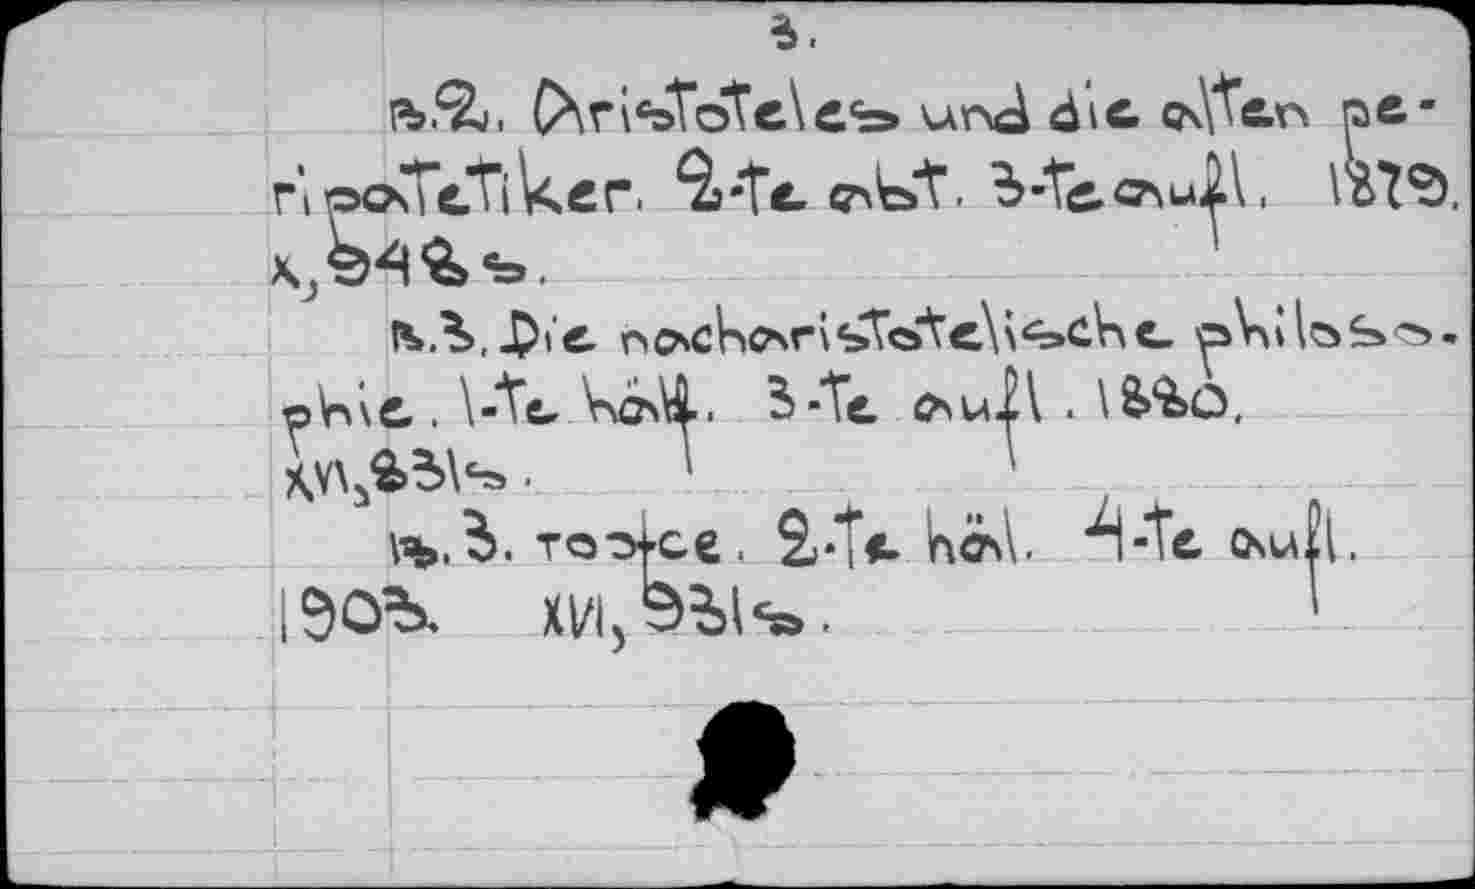 3.
в.2. Aristoteles und die alten pe-
ripatetiker. 2-te abt. 3-te aufl. 1879.
X,948 s.
в.3. Die nacharistotelische philoso-
phie. 1-te hälf. 3-te aufl. 1880.
XVI,831 s.
в.3. тоже. 2-te häl. 4-te aufl.
1903. XVI,931 s.